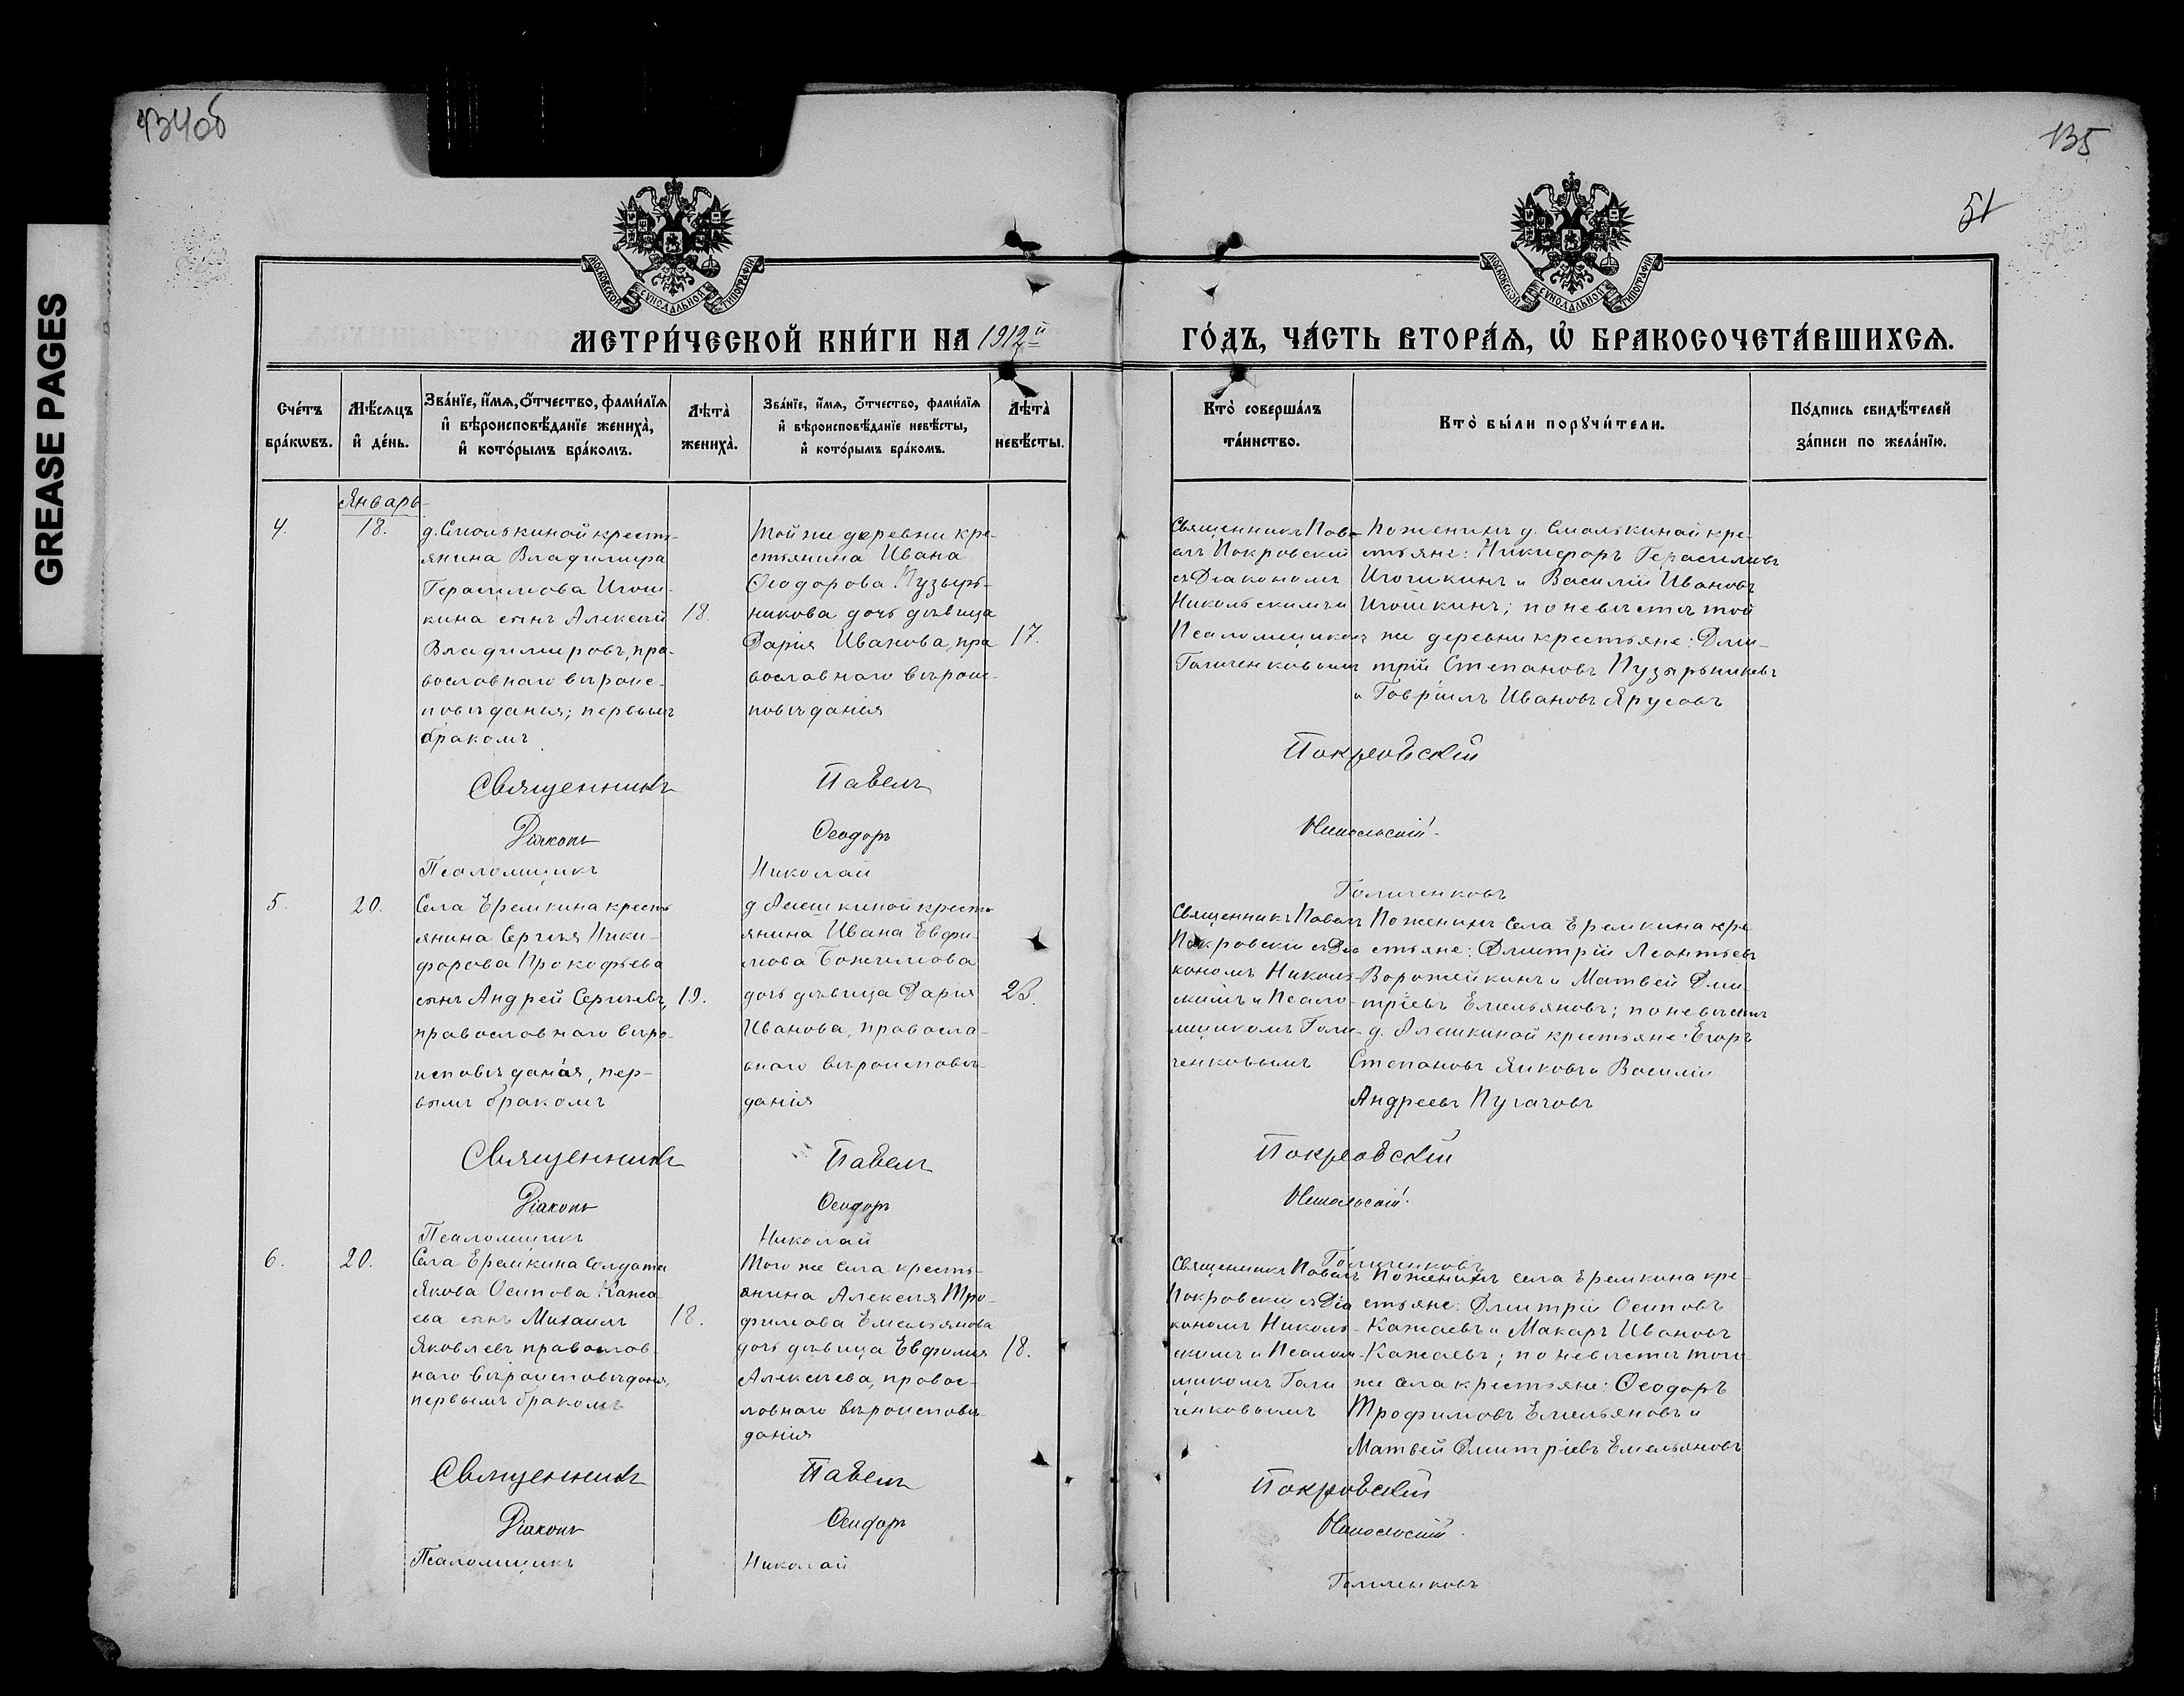 134об
135
51
GREASE PAGES
МОСКОВСКОЙ СѴНОДАЛЬНОЙ ТИПОГРАФІИ
МОСКОВСКОЙ СѴНОДАЛЬНОЙ ТИПОГРАФІИ
МЕТРИ́ЧЕСКОЙ КНИ́ГИ НА 1912й
ГО́ДЪ, ЧА́СТЬ ВТОРА́Я, Ѡ҆ БРАКОСОЧЕТА́ВШИХСЯ.
Сче́тъ бра́кωвъ.
Мѣ́сяцъ и҆ де́нь.
Зва́нїе, и҆́мя, ѻ҆́тчество, фами́лїя и҆ вѣроисповѣ́данїе жениха̀, и҆ кото́рымъ бра́комъ.
Лѣта̀ жениха̀.
Зва́нїе, и҆́мя, ѻ҆́тчество, фами́лїя и҆ вѣроисповѣ́данїе невѣ́сты, и҆ кото́рымъ бра́комъ.
Лѣта̀ невѣ́сты.
Кто̀ соверша́лъ та́инство.
Кто̀ бы́ли порꙋчи́тели.
По́дпись свидѣ́телей за́писи по жела́нїю.
Январь
4.
18.
д. Смолькиной кресть-
янина Владимира
Герасимова Игош-
кина сынъ Алексѣй
Владимировъ, пра-
вославнаго вѣроис-
повѣданія; первымъ
бракомъ
18.
Той же деревни кре-
стьянина Ивана
Ѳеодорова Пузырь-
никова дочь дѣвица
Дарія Иванова, пра
вославнаго вѣроис-
повѣданія
17.
Священникъ Пав-
елъ Покровскій
съ Діакономъ
Никольскимъ и
Псаломщикомъ
Галиченковымъ
По женихѣ д. Смолькиной кре-
стьяне: Никифоръ Герасимовъ
Игошкинъ и Василій Ивановъ
Игошкинъ; по невѣстѣ той
же деревни крестьяне: Дми-
трій Степановъ Пузырьниковъ
и Гавріилъ Ивановъ Ярусовъ
Священникъ Павелъ Покровскій
Діаконъ Ѳеодоръ Никольскій
Псаломщикъ Николай Галиченковъ
5.
20.
Села Еремкина кресть
янина Сергѣя Ники-
форова Прокофьева
сынъ Андрей Сергѣевъ,
православнаго вѣро-
исповѣданія, пер-
вымъ бракомъ
19.
д. Алешкиной кресть-
янина Ивана Евфи-
мова Божимова
дочь дѣвица Дарія
Иванова, правосла-
внаго вѣроисповѣ-
данія
23.
Священникъ Павелъ
Покровскій съ Діа
кономъ Николь-
скимъ и Псало-
мщикомъ Гали-
ченковымъ
По женихѣ села Еремкина кре
стьяне: Дмитрій Леонтьевъ
Ворожейкинъ и Матвей Дми-
тріевъ Емельяновъ; по невѣстѣ
д. Алешкиной крестьяне: Егоръ
Степановъ Яиковъ и Василій
Андреевъ Пугачовъ
Священникъ Павелъ Покровскій
Діаконъ Ѳеодоръ Никольскій
Псаломщикъ Николай Галиченковъ
6.
20.
Села Еремкина Солдата
Якова Осипова Кажа-
ева сынъ Михаилъ
Яковлевъ православ-
наго вѣроисповѣданія,
первымъ бракомъ
18.
Того же села кресть-
янина Алексѣя Тро-
фимова Емельянова
дочь дѣвица Евфимія
Алексѣева, правос-
лавнаго вѣроисповѣ-
данія
18.
Священникъ Павелъ
Покровскій съ Діа
кономъ Николь-
скимъ и Псалом-
щикомъ Гали
ченковымъ
По женихѣ села Еремкина кре-
стьяне: Дмитрій Осиповъ
Кажаевъ и Макаръ Ивановъ
Кажаевъ; по невѣстѣ того
же села крестьяне: Ѳеодоръ
Трофимовъ Емельяновъ и
Матвей Дмитріевъ Емельяновъ
Священникъ Павелъ Покровскій
Діаконъ Ѳеодоръ Никольскій
Псаломщикъ Николай Галиченковъ